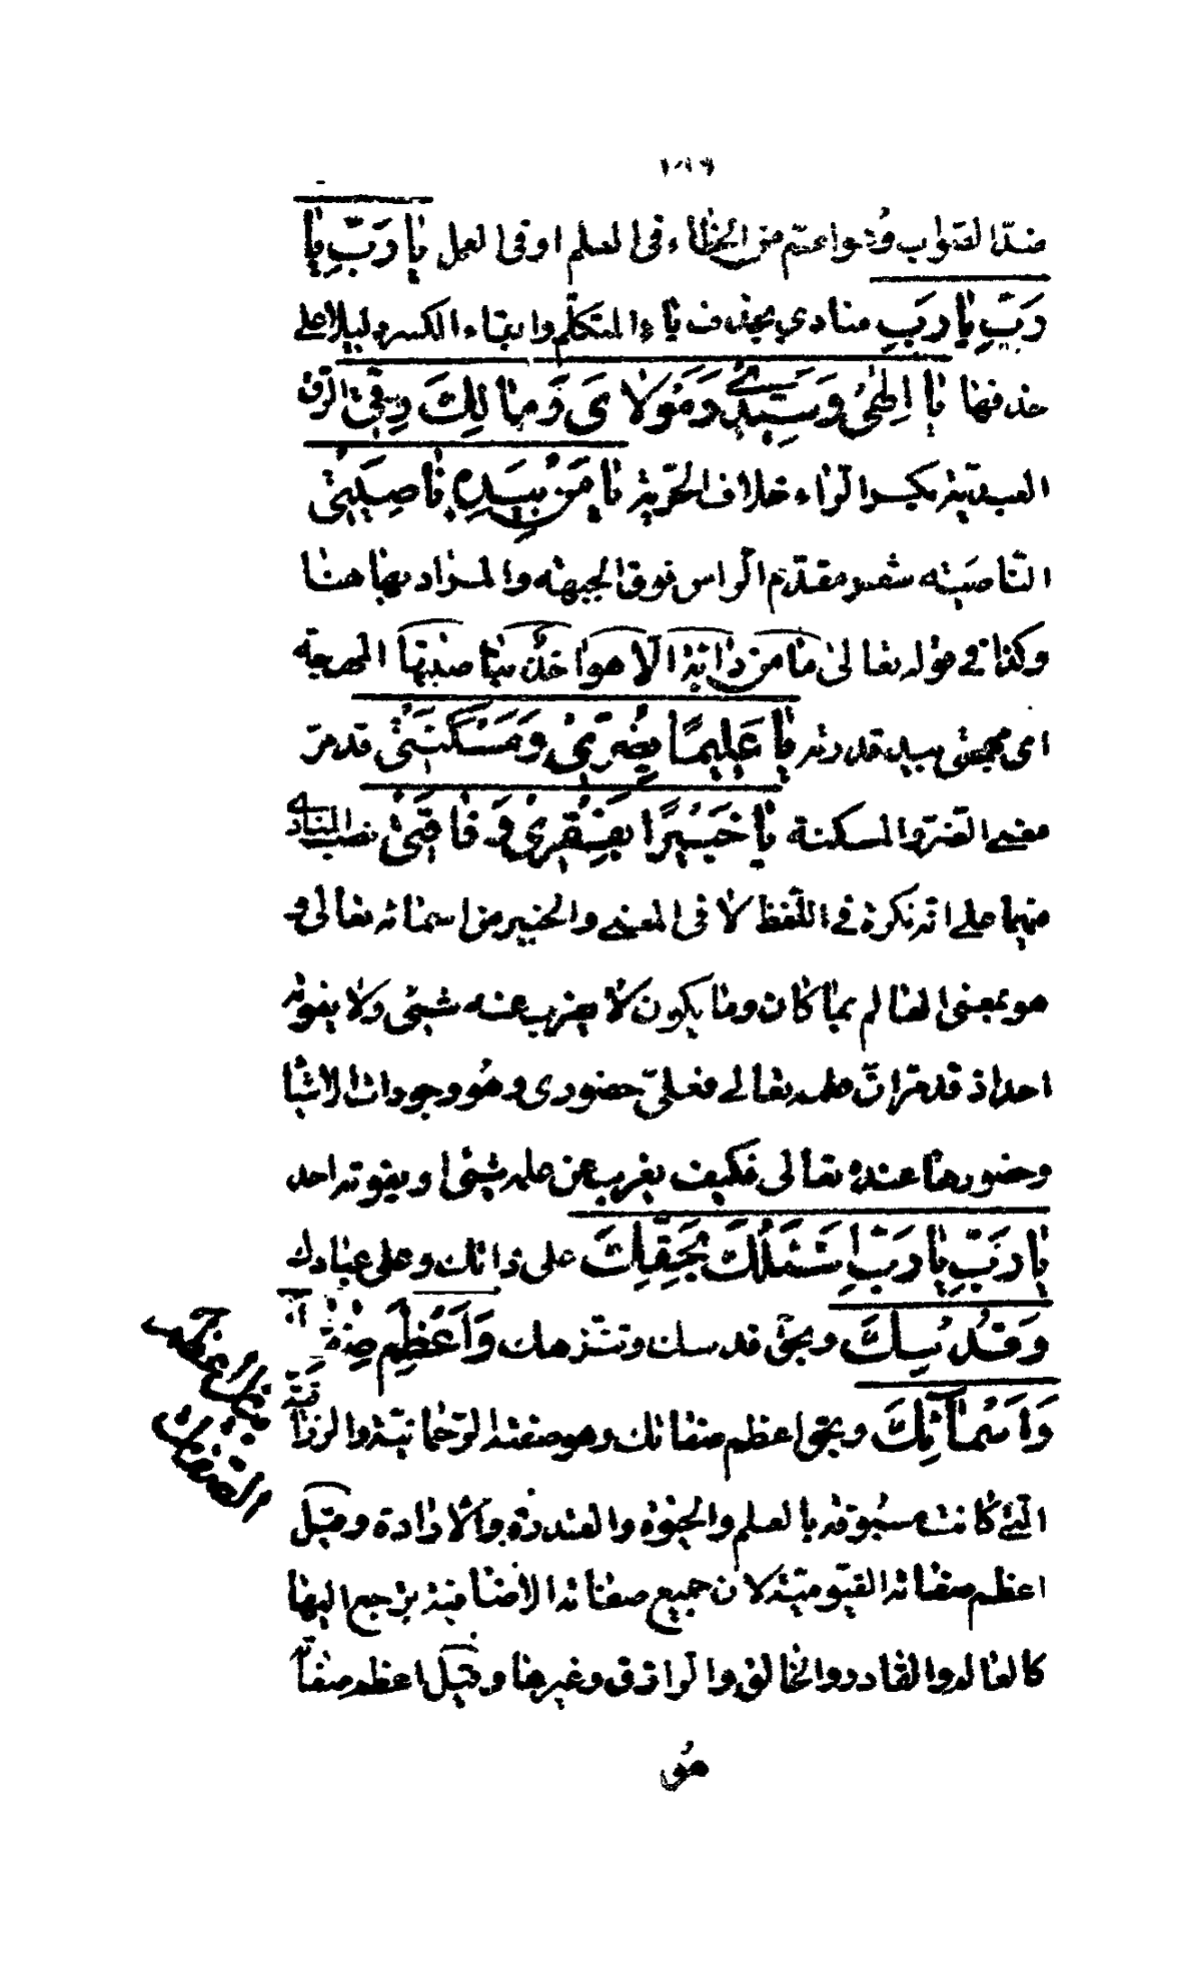 ١٨٦
ضدّ الصّواب وهو اعمّ من الخطاء فى العلم او فى العمل يا رَبِّ يا
رَبِّ يا رَبِّ منادي بحذف ياء المتكلّم وابقاء الكسر دليلا على
حذفها يا اِلهي وَسَيِّدي وَمَولاىَ وَمالِكَ رِقّي الرّق
العبديّة بكسر الراء خلاف الحريّة يا مَنْ بِيَدِهِ ناصِيَتي
النّاصية شعر مقدّم الرأس فوق الجبهة والمراد بها هنا
وكذا في قوله تعالى ما من دابّة الّا هو اخذ بناصيتها المهجة
اى مهجتي بيد قدرته يا عَليمًا بِضُرّي وَمَسْكَنَتي قد مرّ
معنى الضرّ والمسكنة يا خَبيرًا بِفَقْري وَفاقَتي نصب المنادى
منهما على انّه نكرة في اللّفظ لا فى المعنى والخبير من اسمائه تعالى و
هو بمعنى العالم بما كان وما يكون لا يعزب عنه شيئى ولا يفوته
احد اذ قد مرّ انّ علمه تعالى فعلىّ حضورى وهو وجودات الاشيا
وحضورها عنده تعالى فكيف يعزب عن علمه شيئى او يفوته احد
يا رَبِّ يا رَبِّ اَسْئَلُكَ بِحَقِّكَ على ذاتك وعلى عبادك
وَقُدْسِكَ وبحقّ قدسك وتنزهك وَاَعْظَمِ صِفاتِكَ
وَاَسْمائِكَ وبحق اعظم صفاتك وهو صفته الرّحمانيّة والرزاقيّة
الّتي كانت مسبوقة بالعلم والحيوة والقدرة والارادة وقيل
اعظم صفاته القيّوميّة لان جميع صفاته الاضافية يرجع اليها
كالعالم والقادر والخالق والرازق وغيرها وقيل اعظم صفاته
هو